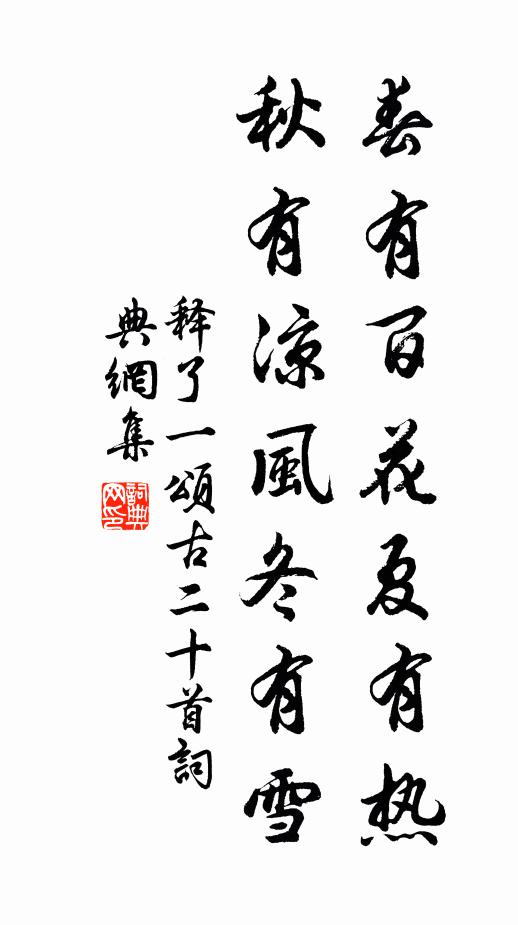 春有百花夏有热
秋有凉風冬有雪
释了一頌古二十首詞
典網集
詞典网印